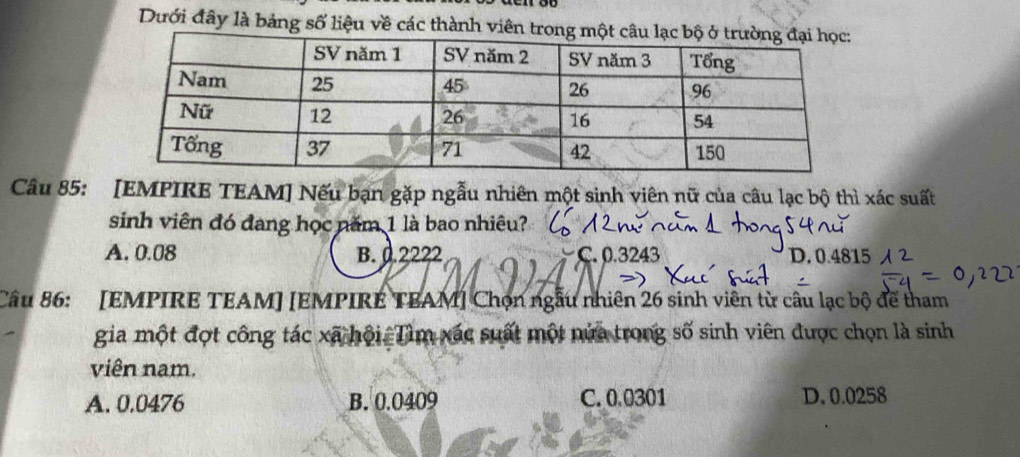 Dưới đây là bảng số liệu về các thành viên trong một câu lạc bộ ở trường đại học:
SV năm 1 SV năm 2 SV năm 3 Tổng
Nam 25 45 26 96
Nữ 12 26 16 54
Tổng 37 71 42 150
Câu 85: [EMPIRE TEAM] Nếu bạn gặp ngẫu nhiên một sinh viên nữ của câu lạc bộ thì xác suất
sinh viên đó đang học năm 1 là bao nhiêu? Có 12 nữ năm 1 trong 54 nữ
A. 0.08 B. 0.2222 C. 0.3243 D. 0.4815
=> Xác suất = 12/54 = 0,222
Câu 86: [EMPIRE TEAM] [EMPIRE TEAM] Chọn ngẫu nhiên 26 sinh viên từ câu lạc bộ để tham
gia một đợt công tác xã hội. Tìm xác suất một nửa trong số sinh viên được chọn là sinh
viên nam.
A. 0.0476 B. 0.0409 C. 0.0301 D. 0.0258